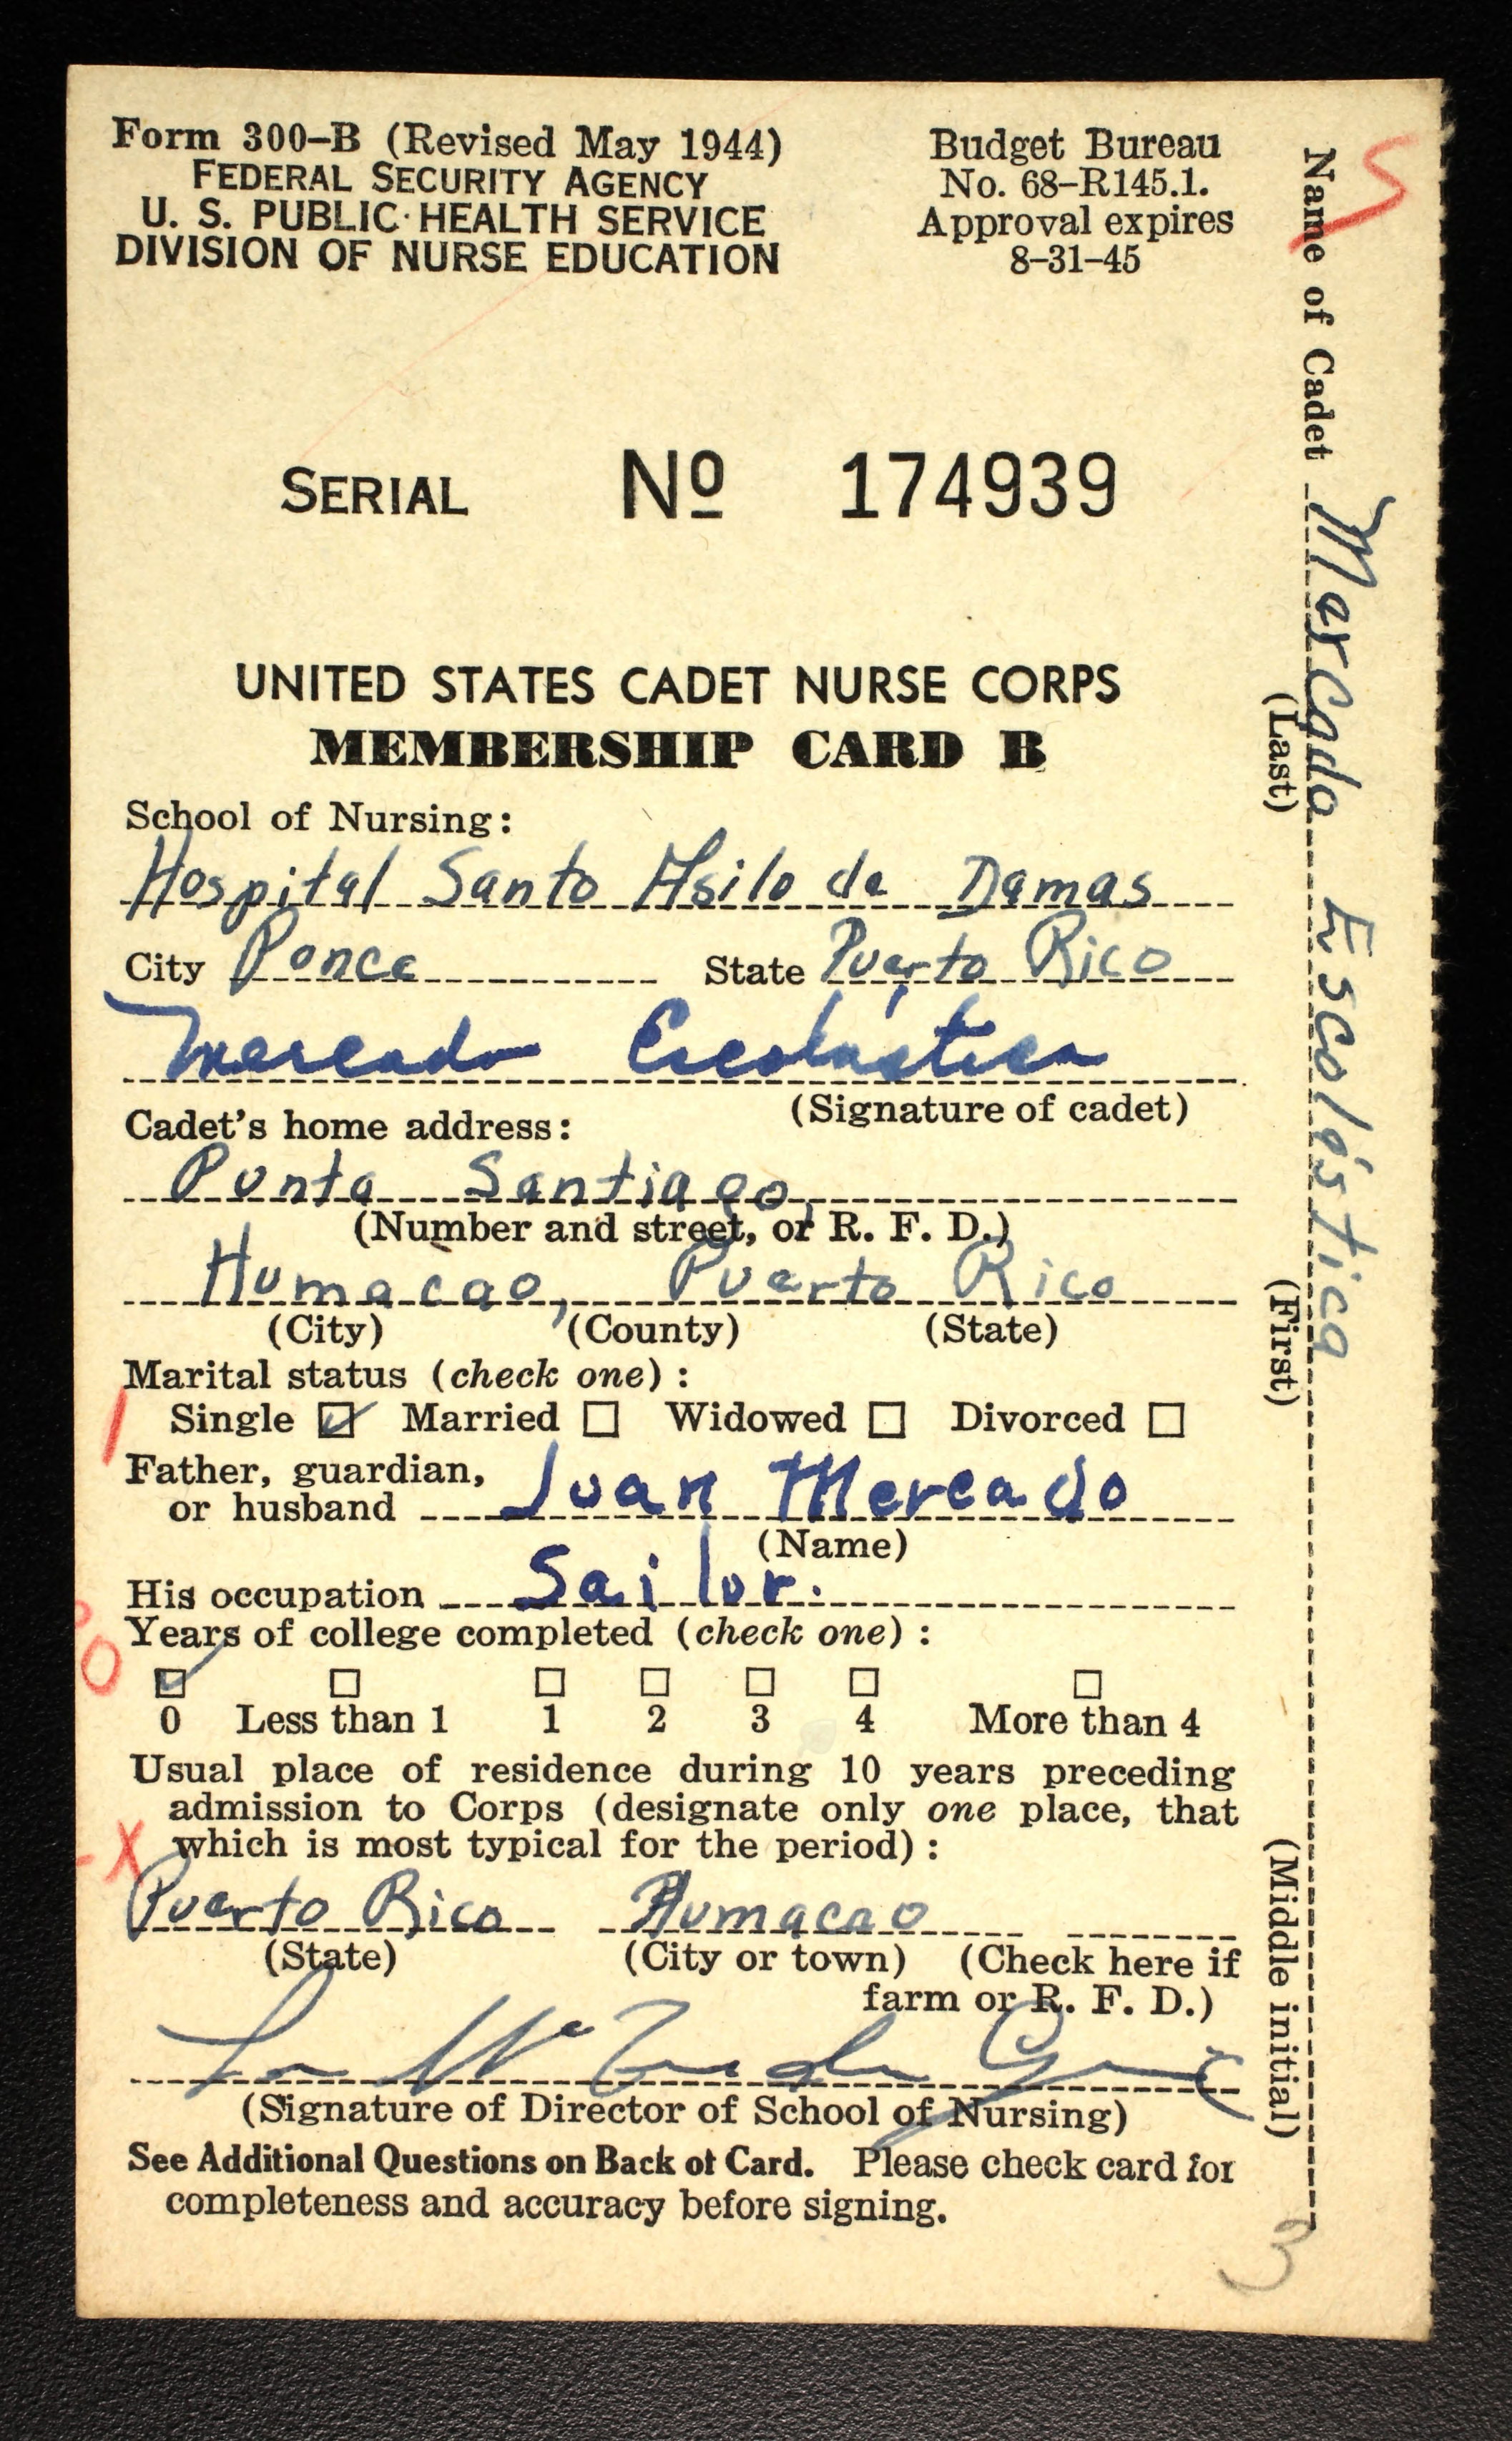 Form 300-B (Revised May 1944)
FEDERAL SECURITY AGENCY
U. S. PUBLIC HEALTH SERVICE
DIVISION OF NURSE EDUCATION
Budget Bureau
No. 68-R145.1.
Approval expires
8-31-45
SERIAL No 174939
UNITED STATES CADET NURSE CORPS
MEMBERSHIP CARD B
School of Nursing:
Hospital Santo Asilo de Damas
City Ponce State Puerto Rico
Mercado Escolástica
(Signature of cadet)
Cadet's home address:
Punta Santiago,
(Number and street, or R. F. D.)
Humacao, Puerto Rico
(City) (County) (State)
Marital status (check one):
Single Married Widowed Divorced
Father, guardian,
or husband Juan Mercado
(Name)
His occupation Sailor.
Years of college completed (check one):
0 Less than 1 1 2 3 4 More than 4
Usual place of residence during 10 years preceding
admission to Corps (designate only one place, that
which is most typical for the period):
Puerto Rico Humacao
(State) (City or town) (Check here if
farm or R. F. D.)
(Signature of Director of School of Nursing)
See Additional Questions on Back of Card. Please check card for
completeness and accuracy before signing.
Name of Cadet Mercado Escolástica
(Last) (First) (Middle initial)
5
1
0
X
3